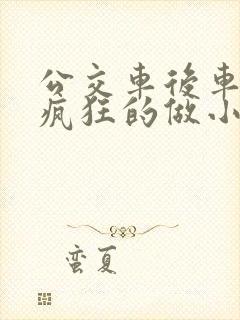 公交車後車
瘋狂的做小
蛮夏